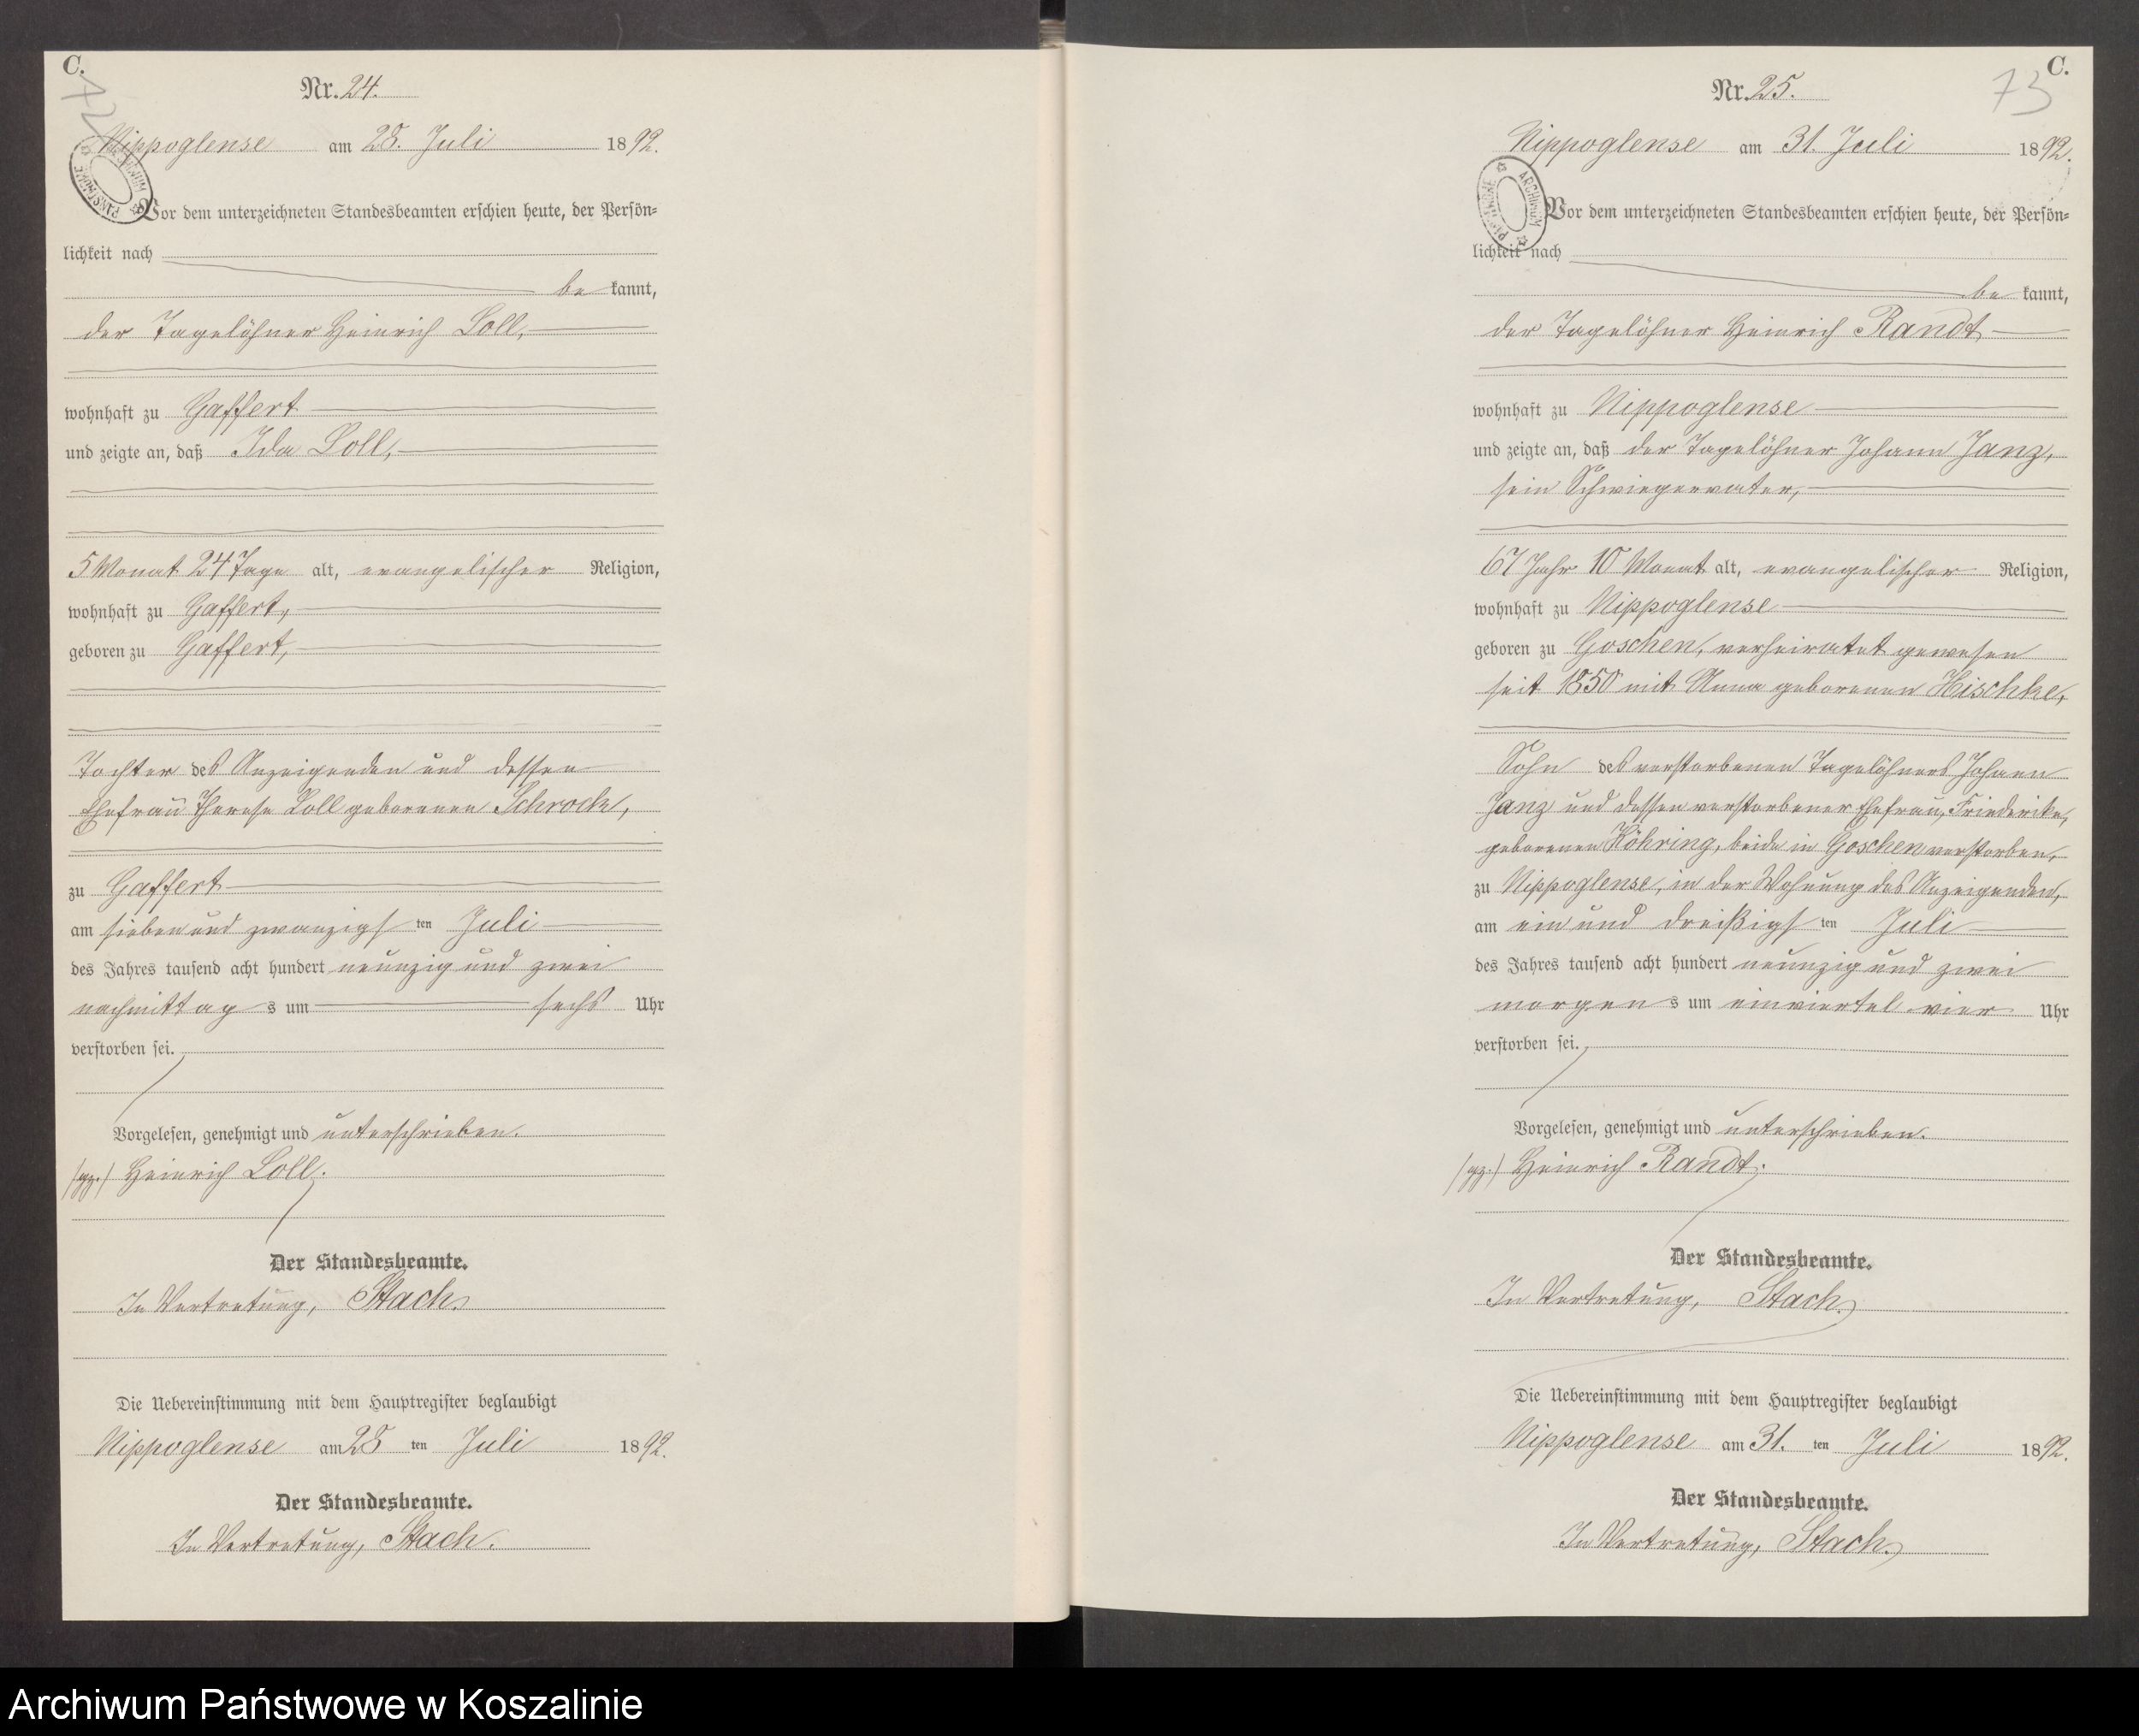 C.
Nr. 24.
Nippoglense am 28. Juli 1892.
Vor dem unterzeichneten Standesbeamten erschien heute, der Persön-
lichkeit nach
be kannt,
der Tagelöhner Heinrich Loll,
wohnhaft zu Gaffert
und zeigte an, daß Ida Loll,
5 Monat 24 Tage alt, evangelischer Religion,
wohnhaft zu Gaffert,
geboren zu Gaffert,
Tochter des Anzeigenden und dessen
Ehefrau Therese Loll geborenen Schroch,
zu Gaffert
am sieben und zwanzigsten Juli
des Jahres tausend acht hundert neunzig und zwei
nachmittags um sechs Uhr
verstorben sei.
Vorgelesen, genehmigt und unterschrieben.
(gz.) Heinrich Loll.
Der Standesbeamte.
In Vertretung, Stach.
Die Uebereinstimmung mit dem Hauptregister beglaubigt
Nippoglense am 28 ten Juli 1892.
Der Standesbeamte.
In Vertretung, Stach.
C.
73
Nr. 25.
Nippoglense am 31. Juli 1892.
ARCHIWUM
Vor dem unterzeichneten Standesbeamten erschien heute, der Persön-
lichkeit nach
be kannt,
der Tagelöhner Heinrich Randt
wohnhaft zu Nippoglense
und zeigte an, daß der Tagelöhner Johann Janz,
sein Schwiegervater,
67 Jahr 10 Monat alt, evangelischer Religion,
wohnhaft zu Nippoglense
geboren zu Goschen, verheiratet gewesen
seit 1850 mit Anna geborenen Hischke,
Sohn des verstorbenen Tagelöhners Johann
Janz und dessen verstorbener Ehefrau, Friederike,
geborenen Köhring, beide in Goschen verstorben,
zu Nippoglense, in der Wohnung des Anzeigenden,
am ein und dreißigsten Juli
des Jahres tausend acht hundert neunzig und zwei
morgens um einviertel vier Uhr
verstorben sei.
Vorgelesen, genehmigt und unterschrieben.
(gz.) Heinrich Randt.
Der Standesbeamte.
In Vertretung, Stach.
Die Uebereinstimmung mit dem Hauptregister beglaubigt
Nippoglense am 31. ten Juli 1892.
Der Standesbeamte.
In Vertretung, Stach.
Archiwum Państwowe w Koszalinie